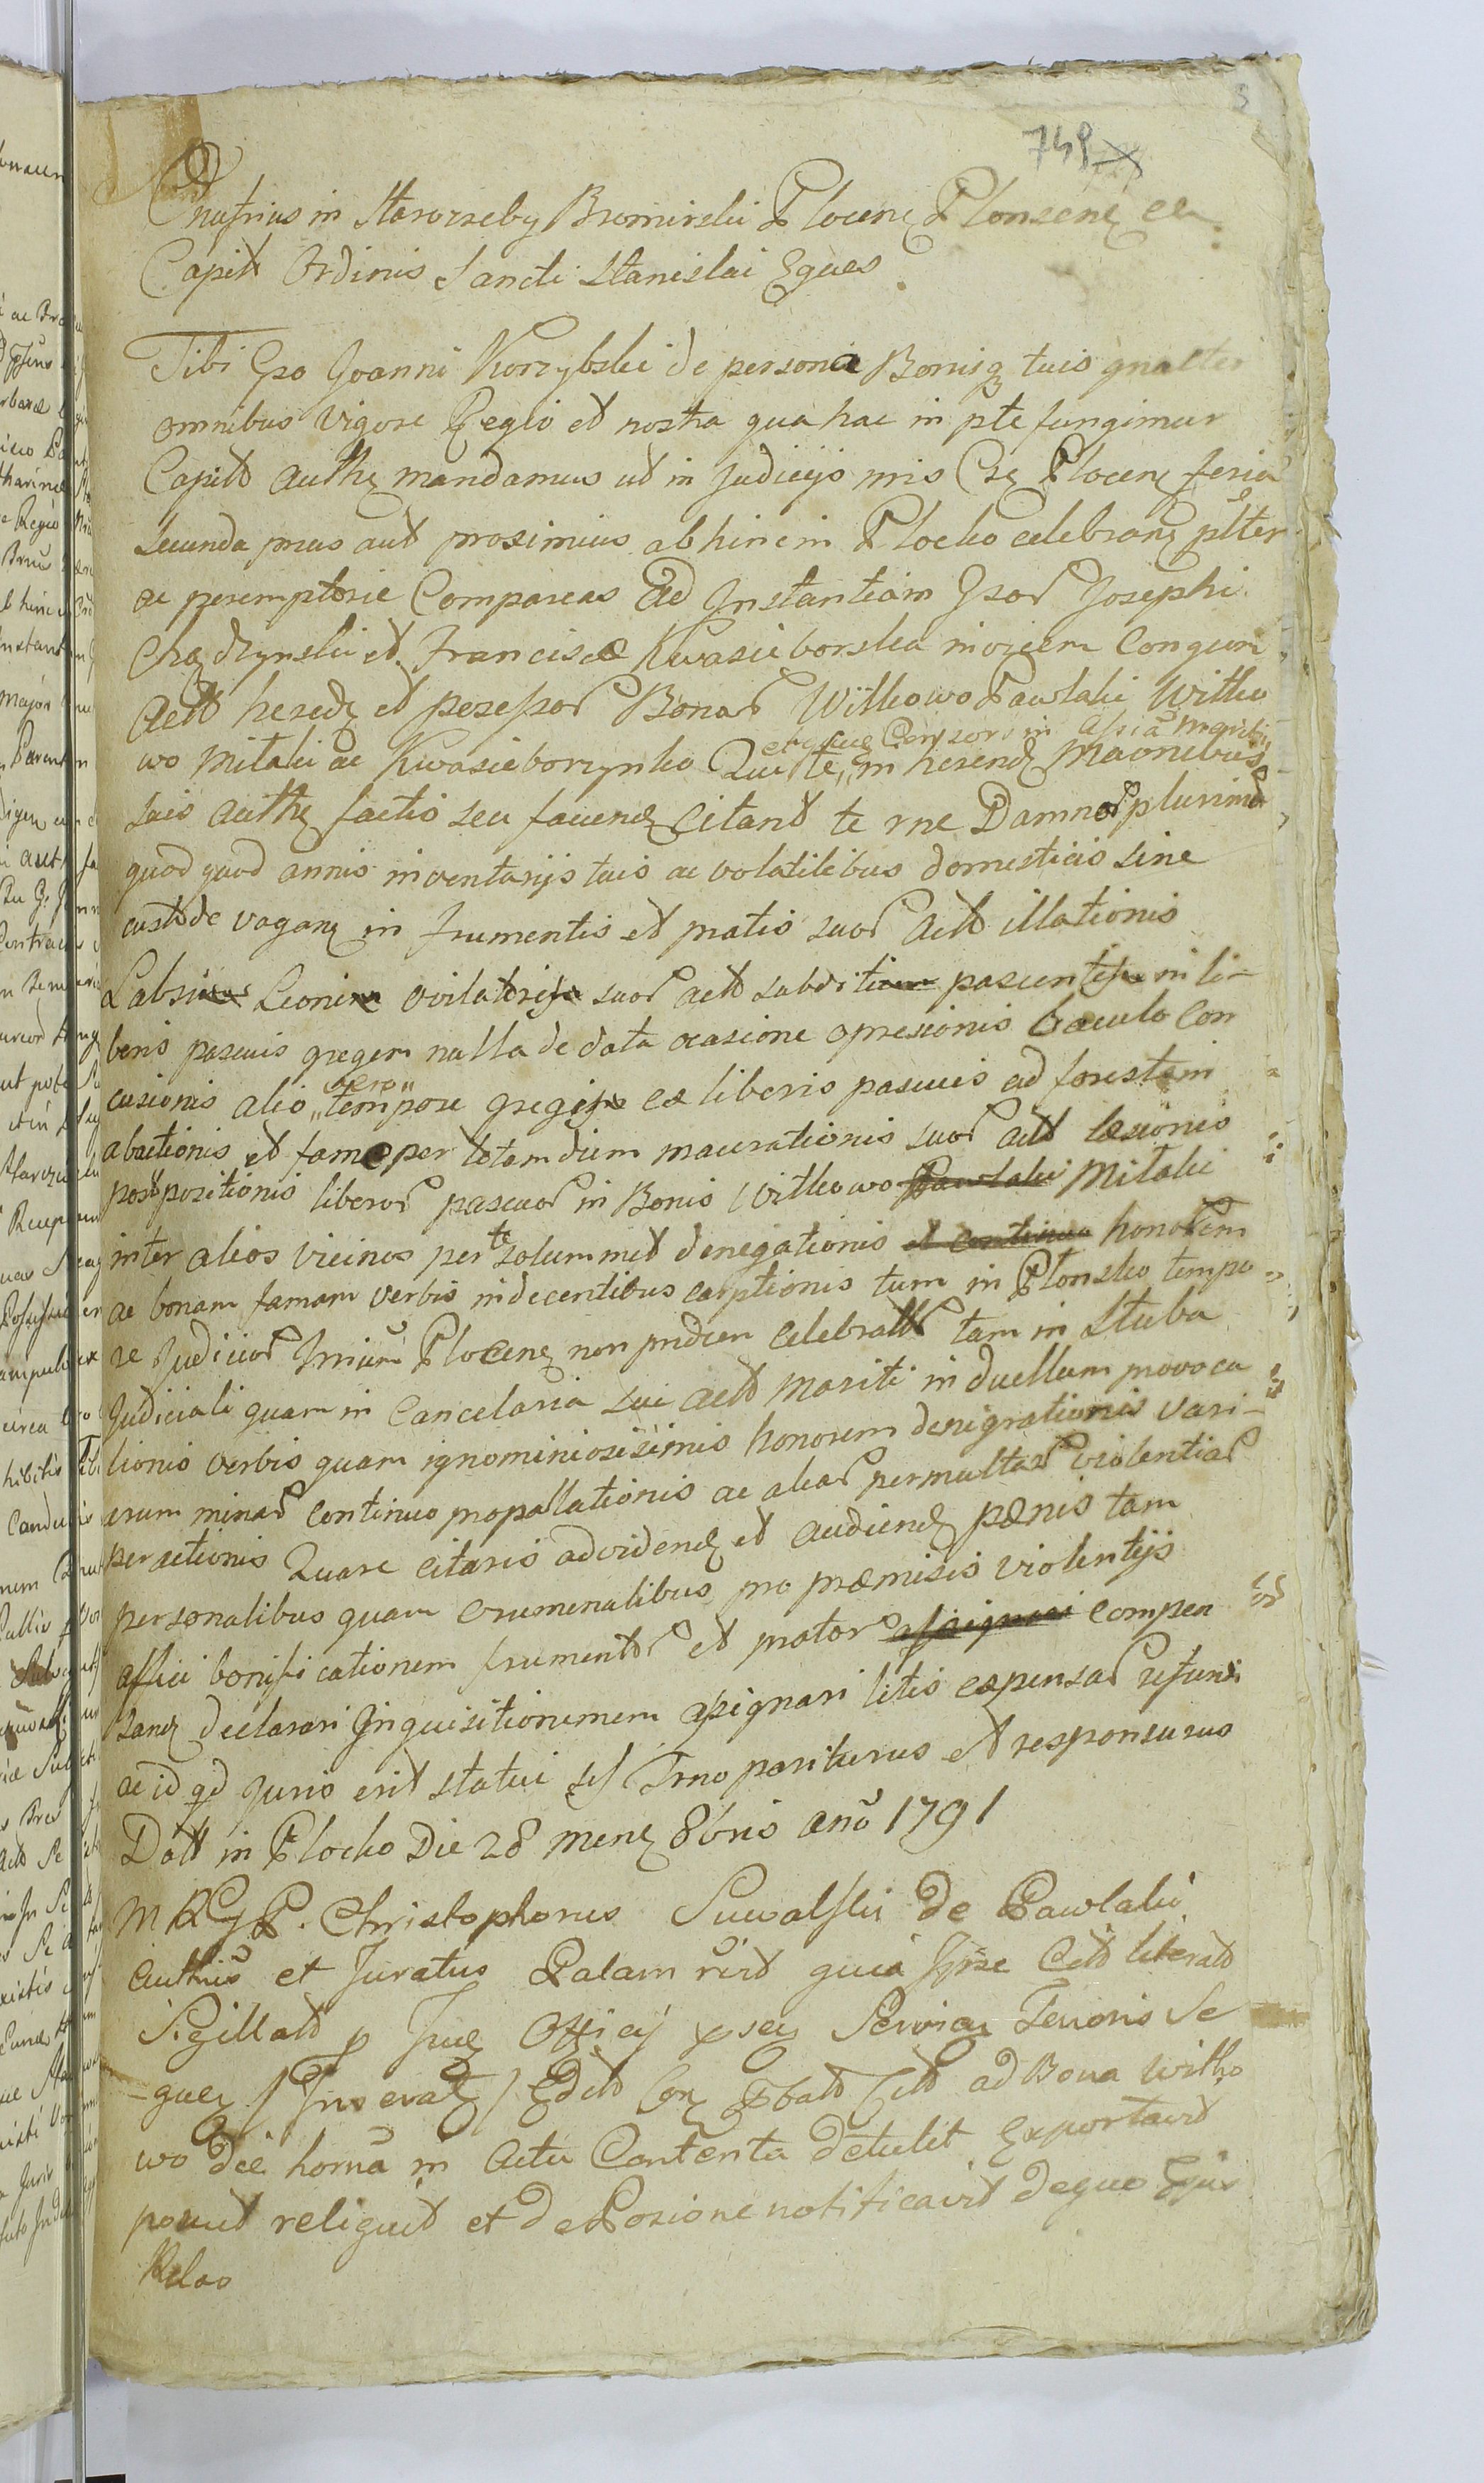 3
749
Onufrius in Starorzeby Bromirski Płocen Płonscen
Capit Ordinis Sancti Stanislai Eques
Tibi Gso Joanni Korzybski de persona Bonisq tuis gnalter
omnibus Vigore Regio et nostra qua hac in pte fungimur
Capit Auth mandamus ut in Judicijs nris Cs Płocen feria
Secunda prius aut proximius abhinc in Płocko celebran plter
ac peremptorie Compareas Ad Instantiam Gsor Josephi
Chądzynski et Franciscæ Kwasieborska in vicem Conjun
Actt hered et posessor Bonor Witkowo Pawlaki Witko
ejusque Censores in Assia Mariti
wo Mitaki ac Kwasieborzynko Qui te in herend Maonibus
suis Auth factis seu fauend Citant te rne Damnor plurimor
quod quod annis inventarijs tuis ac volatilibus domesticis sine
custode vagan in frumentis et pratis suor Actt illationis
Labsi Leoni ovilatorij suor actt subditi pascentis in li-
beris pascuis gregem nulla de data ocasione opresionis baculo Con
vero
cusionis alio tempore gregis ex liberis pascuis ad forestam
abactionis et fame per totam diem macerationis suor actt læsionis
postpositionis liberor pascuor in Bonis Witkowo Pawlaki Mitaki
te
inter alios vicinos per solummet denegationis et continua honorem
ac bonam famam verbis indecentibus carptionis tum in Płonsko tempo
re Judicior Płocen non pridem celebratt tam in Stuba
Judiciali quam in Cancelaria sui actt Mariti in duellum provoca
tionis verbis quam ignominiosisimis honorem denigrationis vari-
arum minar continuo propallationis ac aliar permultar violentiar
peractionis Quare citaris ad videnđ et audienđ pænis tam
personalibus quam crumenalibus pro præmisis violentijs
affici bonificationem frumentor et prator assignari compen
sanđ declarari Inquisitionemem assignari litis expensas refundi
ac id qd Juris erit statui Trno pariturus et responsurus
Datt in Płocko Die 28 Mens 8bris Año 1791
M R G P. Christophorus Suwalski de Pawlaki
Authus et Juratus Palam rcit quia Citt literatt
Sigillatt p Offici Servien Tenoris Se
quen / Inserat / Editt Con Citt ad Bona Witko
wo die horna in Actu Contenta detulit Exportavit
posuit reliquit et de Posione notificavit de quo Ejus
Relao